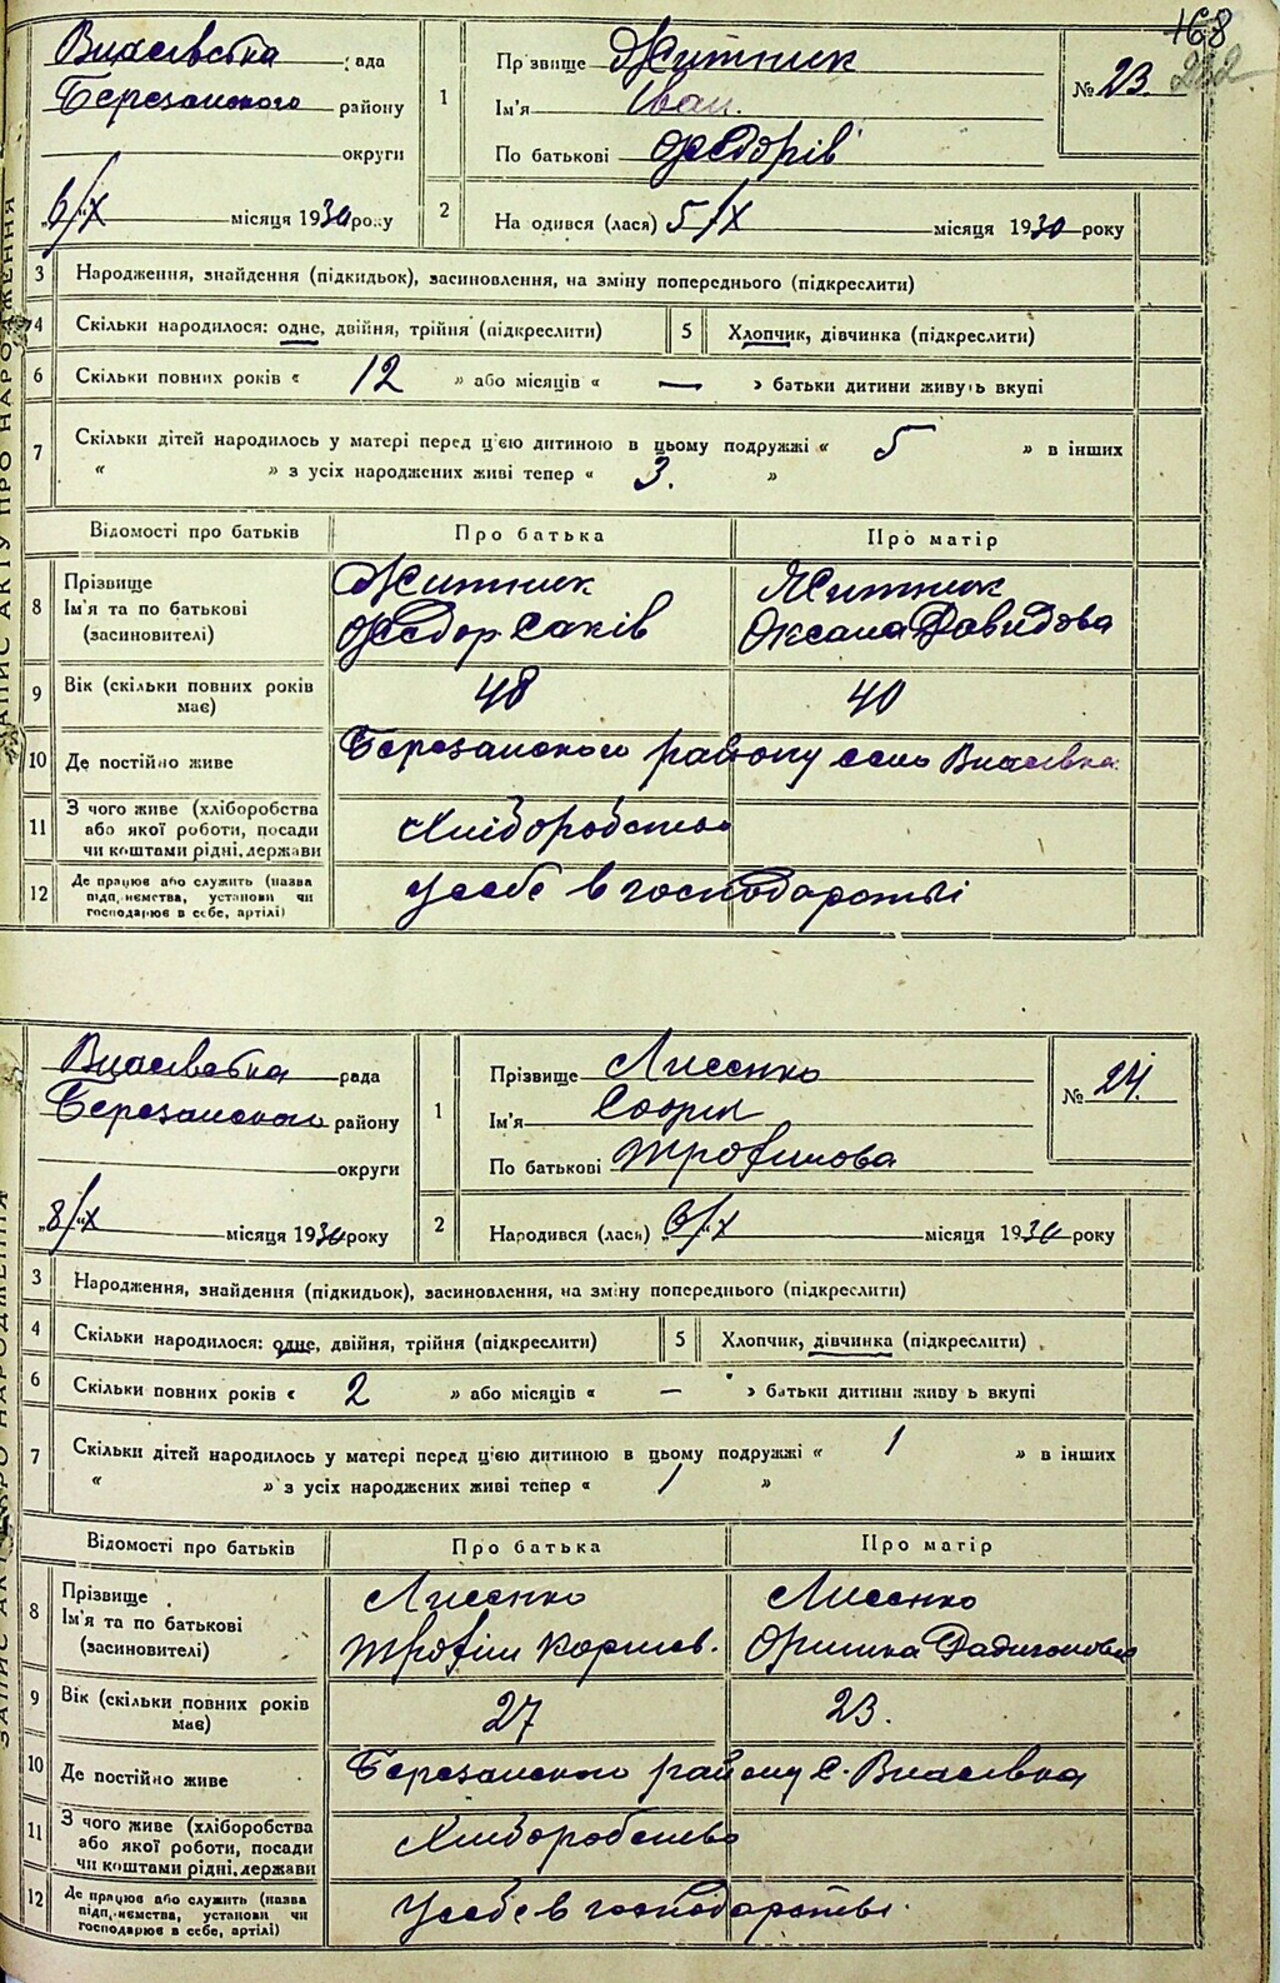 168
222
Власівська рада
Березанського району
округи
„6/ІХ місяця 1930 року
1
Прізвище Житник
Ім'я Іван.
По батькові Федорів
№ 23.
2
Народився (лася) 5/ІХ місяця 1930 року
3 Народження, знайдення (підкидьок), засиновлення, на зміну попереднього (підкреслити)
4 Скільки народилося: одне, двійня, трійня (підкреслити) 5 Хлопчик, дівчинка (підкреслити)
6 Скільки повних років « 12 » або місяців « — » батьки дитини живуть вкупі
7 Скільки дітей народилось у матері перед ц'єю дитиною в цьому подружжі « 5 » в інших
« » з усіх народжених живі тепер « 3. »
Відомості про батьків Про батька Про матір
8 Прізвище Житник Житник
Ім'я та по батькові Федор Саків Оксана Давидова
(засиновителі)
9 Вік (скільки повних років має) 48 40
10 Де постійно живе Березанського району село Власівка
11 З чого живе (хліборобства Хліборобство
або якої роботи, посади
чи коштами рідні, держави
12 Де працює або служить (назва У себе в господарстві
підприємства, установи чи
господарює в себе, артілі)
Власівська рада
Березанського району
округи
„8/ІХ місяця 1930 року
1
Прізвище Лисенко
Ім'я Софія
По батькові Трофимова
№ 24.
2
Народився (лася) 6/ІХ місяця 1930 року
3 Народження, знайдення (підкидьок), засиновлення, на зміну попереднього (підкреслити)
4 Скільки народилося: одне, двійня, трійня (підкреслити) 5 Хлопчик, дівчинка (підкреслити)
6 Скільки повних років « 2 » або місяців « — » батьки дитини живуть вкупі
7 Скільки дітей народилось у матері перед ц'єю дитиною в цьому подружжі « 1 » в інших
« » з усіх народжених живі тепер « 1 »
Відомості про батьків Про батька Про матір
8 Прізвище Лисенко Лисенко
Ім'я та по батькові Трофім Корнієв. Оришка
(засиновителі)
9 Вік (скільки повних років має) 27 23.
10 Де постійно живе Березанського району с. Власівка
11 З чого живе (хліборобства Хліборобство
або якої роботи, посади
чи коштами рідні, держави
12 Де працює або служить (назва У себе в господарстві
підприємства, установи чи
господарює в себе, артілі)
ЗАПИС АКТУ ПРО НАРОДЖЕННЯ
ЗАПИС АКТУ ПРО НАРОДЖЕННЯ